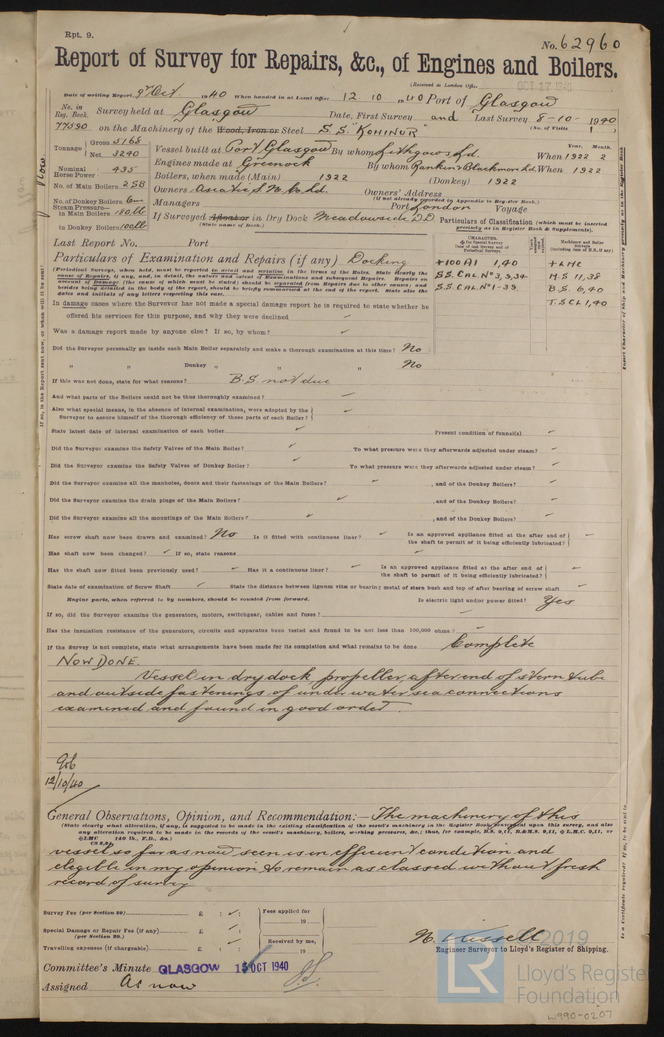 Rpt. 9.
No. 62960
Report of Survey for Repairs, &c., of Engines and Boilers.
(Received at London Office OCT 17 1940
Date of writing Report 9th Oct 1940 When handed in at Local Office 12 10 1940 Port of Glasgow
No. in Reg. Book. Survey held at Glasgow Date, First Survey and Last Survey 8-10-1940
77590 on the Machinery of the Wood, Iron or Steel S.S. "KOHINUR" (No. of Visits 1)
Tonnage Gross 5168 Net 3240
Vessel built at Port Glasgow By whom Lithgows Ld. When 1922 2
Year. Month.
Nominal Horse Power 435
Engines made at Greenock By whom Rankin & Blackmore Ld. When 1922
No. of Main Boilers 2SB
Boilers, when made (Main) 1922 (Donkey) 1922
No. of Donkey Boilers
Owners Asiatic S.N. Co. Ld. Owners' Address
(If not already recorded in Appendix to Register Book.)
Steam Pressure— in Main Boilers 180 lb
Managers Port London Voyage
in Donkey Boilers 100 lb
If Surveyed Afloat or in Dry Dock Meadowside DD
(State name of Dock.)
Particulars of Classification (which must be inserted precisely as in Register Book & Supplements).
Last Report No. Port
Particulars of Examination and Repairs (if any) Docking
+100A1 1,40
S.S. CAL. No 3, 3,34
S.S. CAL. No 1-39
+LMC
M.S 11,38
B.S. 6,40
T.S CL 1,40
In damage cases where the Surveyor has not made a special damage report he is required to state whether he
offered his services for this purpose, and why they were declined
Was a damage report made by anyone else? If so, by whom?
Did the Surveyor personally go inside each Main Boiler separately and make a thorough examination at this time? No
" " Donkey " " " No
If this was not done, state for what reasons? B.S. not due
And what parts of the Boilers could not be thoroughly examined?
Also what special means, in the absence of internal examination, were adopted by the
Surveyor to assure himself of the thorough efficiency of those parts of each Boiler?
State latest date of internal examination of each boiler Present condition of funnel(s)
Did the Surveyor examine the Safety Valves of the Main Boiler? To what pressure were they afterwards adjusted under steam?
Did the Surveyor examine the Safety Valves of Donkey Boiler? To what pressure were they afterwards adjusted under steam?
Did the Surveyor examine all the manholes, doors and their fastenings of the Main Boilers? , and of the Donkey Boilers?
Did the Surveyor examine the drain plugs of the Main Boilers? , and of the Donkey Boilers?
Did the Surveyor examine all the mountings of the Main Boilers? , and of the Donkey Boilers?
Has screw shaft now been drawn and examined? No Is it fitted with continuous liner? Is an approved appliance fitted at the after end of the shaft to permit of it being efficiently lubricated?
Has shaft now been changed? If so, state reasons
Has the shaft now fitted been previously used? Has it a continuous liner? Is an approved appliance fitted at the after end of the shaft to permit of it being efficiently lubricated?
State date of examination of Screw Shaft State the distance between lignum vitæ or bearing metal of stern bush and top of after bearing of screw shaft
Engine parts, when referred to by numbers, should be counted from forward. Is electric light and/or power fitted? Yes
If so, did the Surveyor examine the generators, motors, switchgear, cables and fuses?
Has the insulation resistance of the generators, circuits and apparatus been tested and found to be not less than 100,000 ohms?
If the Survey is not complete, state what arrangements have been made for its completion and what remains to be done Complete
NOW DONE.
Vessel in dry dock, propeller, after end of stern tube
and outside fastenings of under water sea connections
examined and found in good order.
12/10/40
General Observations, Opinion, and Recommendation:— The machinery of this
vessel so far as now seen is in efficient condition and
eligible in my opinion to remain as classed without fresh
record of survey
Survey Fee (per Section 29) £ : :
Special Damage or Repair Fee (if any) (per Section 29.) £ : :
Travelling expenses (if chargeable) £ : :
Fees applied for 19
Received by me, 19
Engineer Surveyor to Lloyd's Register of Shipping.
Committee's Minute GLASGOW 15 OCT 1940
Assigned As now
2019
LR
Lloyd's Register
Foundation
W990-0207